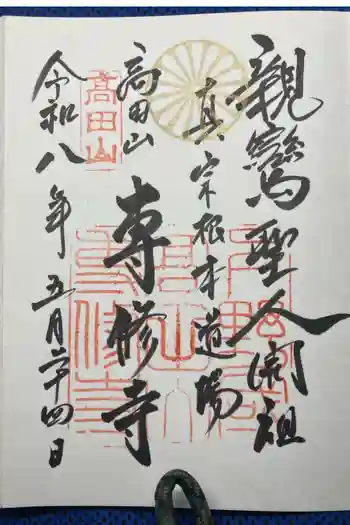 親鸞聖人開祖
真宗根本道場
高田山
専修寺
高田山
令和八年五月二十四日